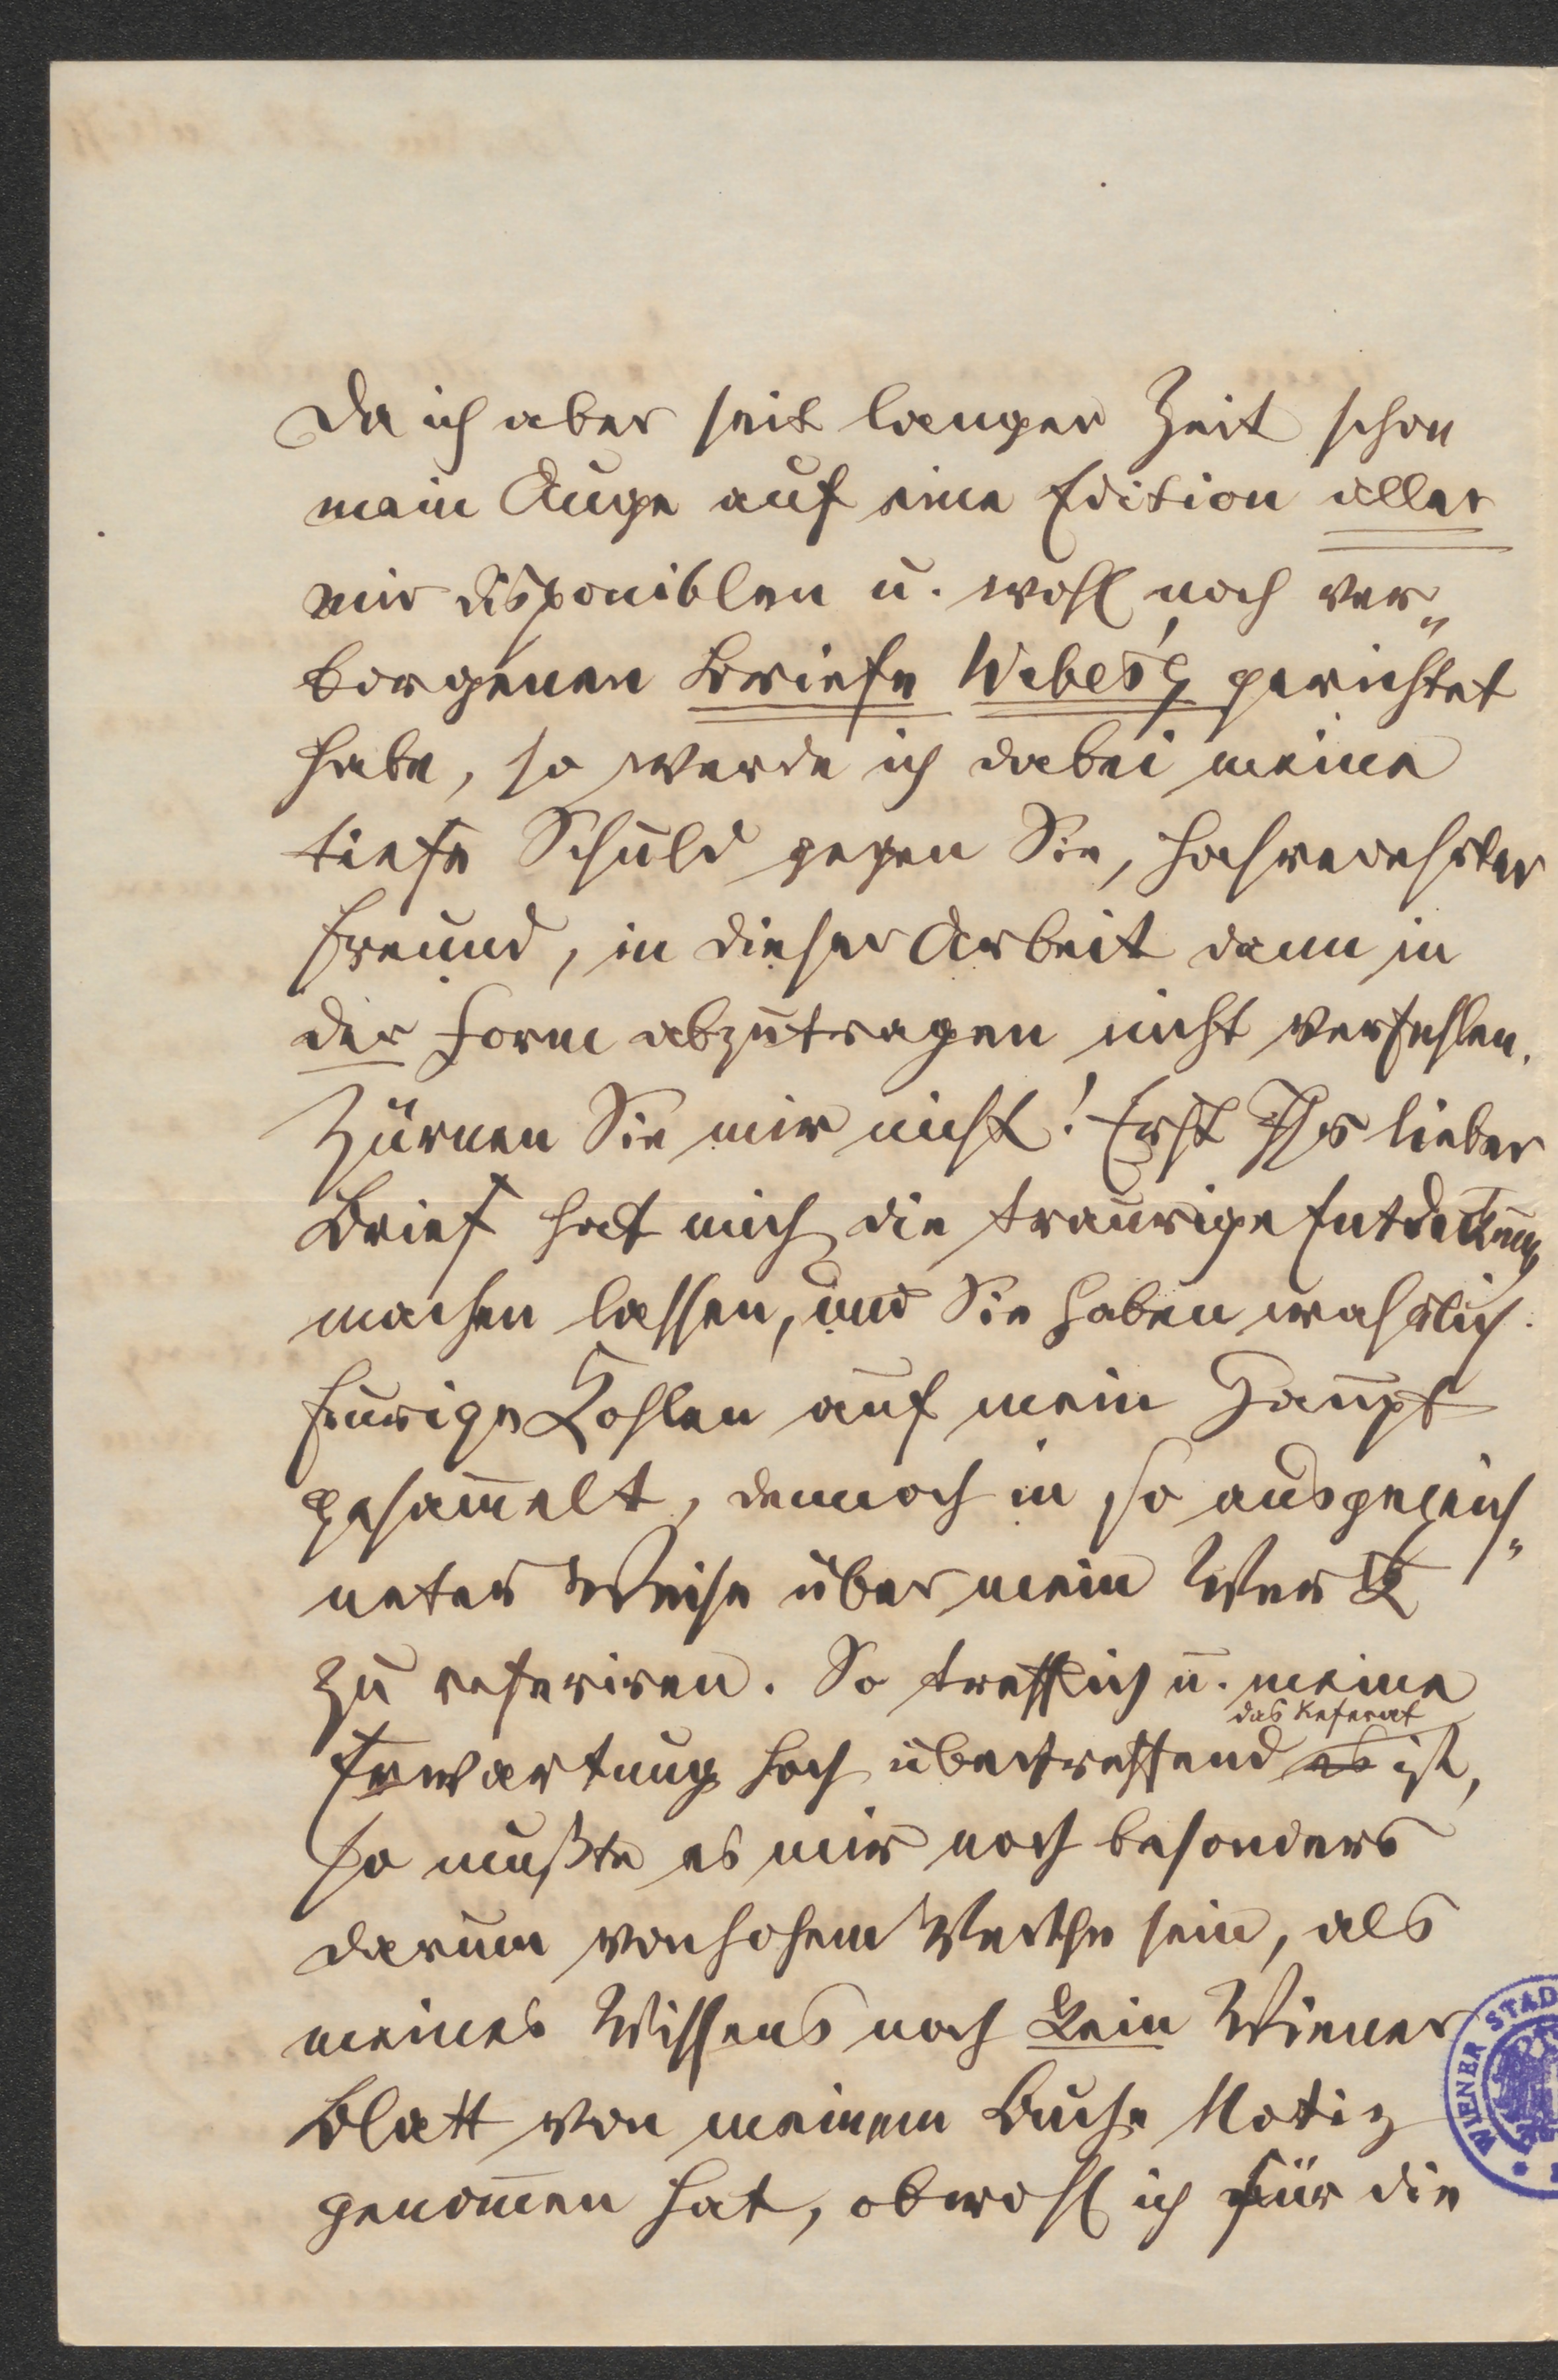 Da ich aber seit langer Zeit schon
mein Auge auf eine Edition aller
mir disponiblen u. wohl noch ver„
borgenen Briefe Weber's gerichtet
habe, so werde ich dabei meine
tiefe Schuld gegen Sie, hochverehrter
Freund, in dieser Arbeit dann in
der Form abzutragen nicht verfehlen.
Zürnen Sie mir nicht! Erst Ihr lieber
Brief hat mich die traurige Entdeckung
machen lassen, und Sie haben wahrlich
feurige Kohlen auf mein Haupt
gesam̅elt, dennoch in so ausgezeich„
neter Weise über mein Werk
zu referiren. So trefflich u. meine
das Referat
Erwartung hoch übertreffend es ist,
so mußte es mir noch besonders
darum von hohem Werthe sein, als
meines Wissens noch kein Wiener
Blatt von meinem Buche Notiz
genom̅en hat, obwohl ich für die
WIENER STAD